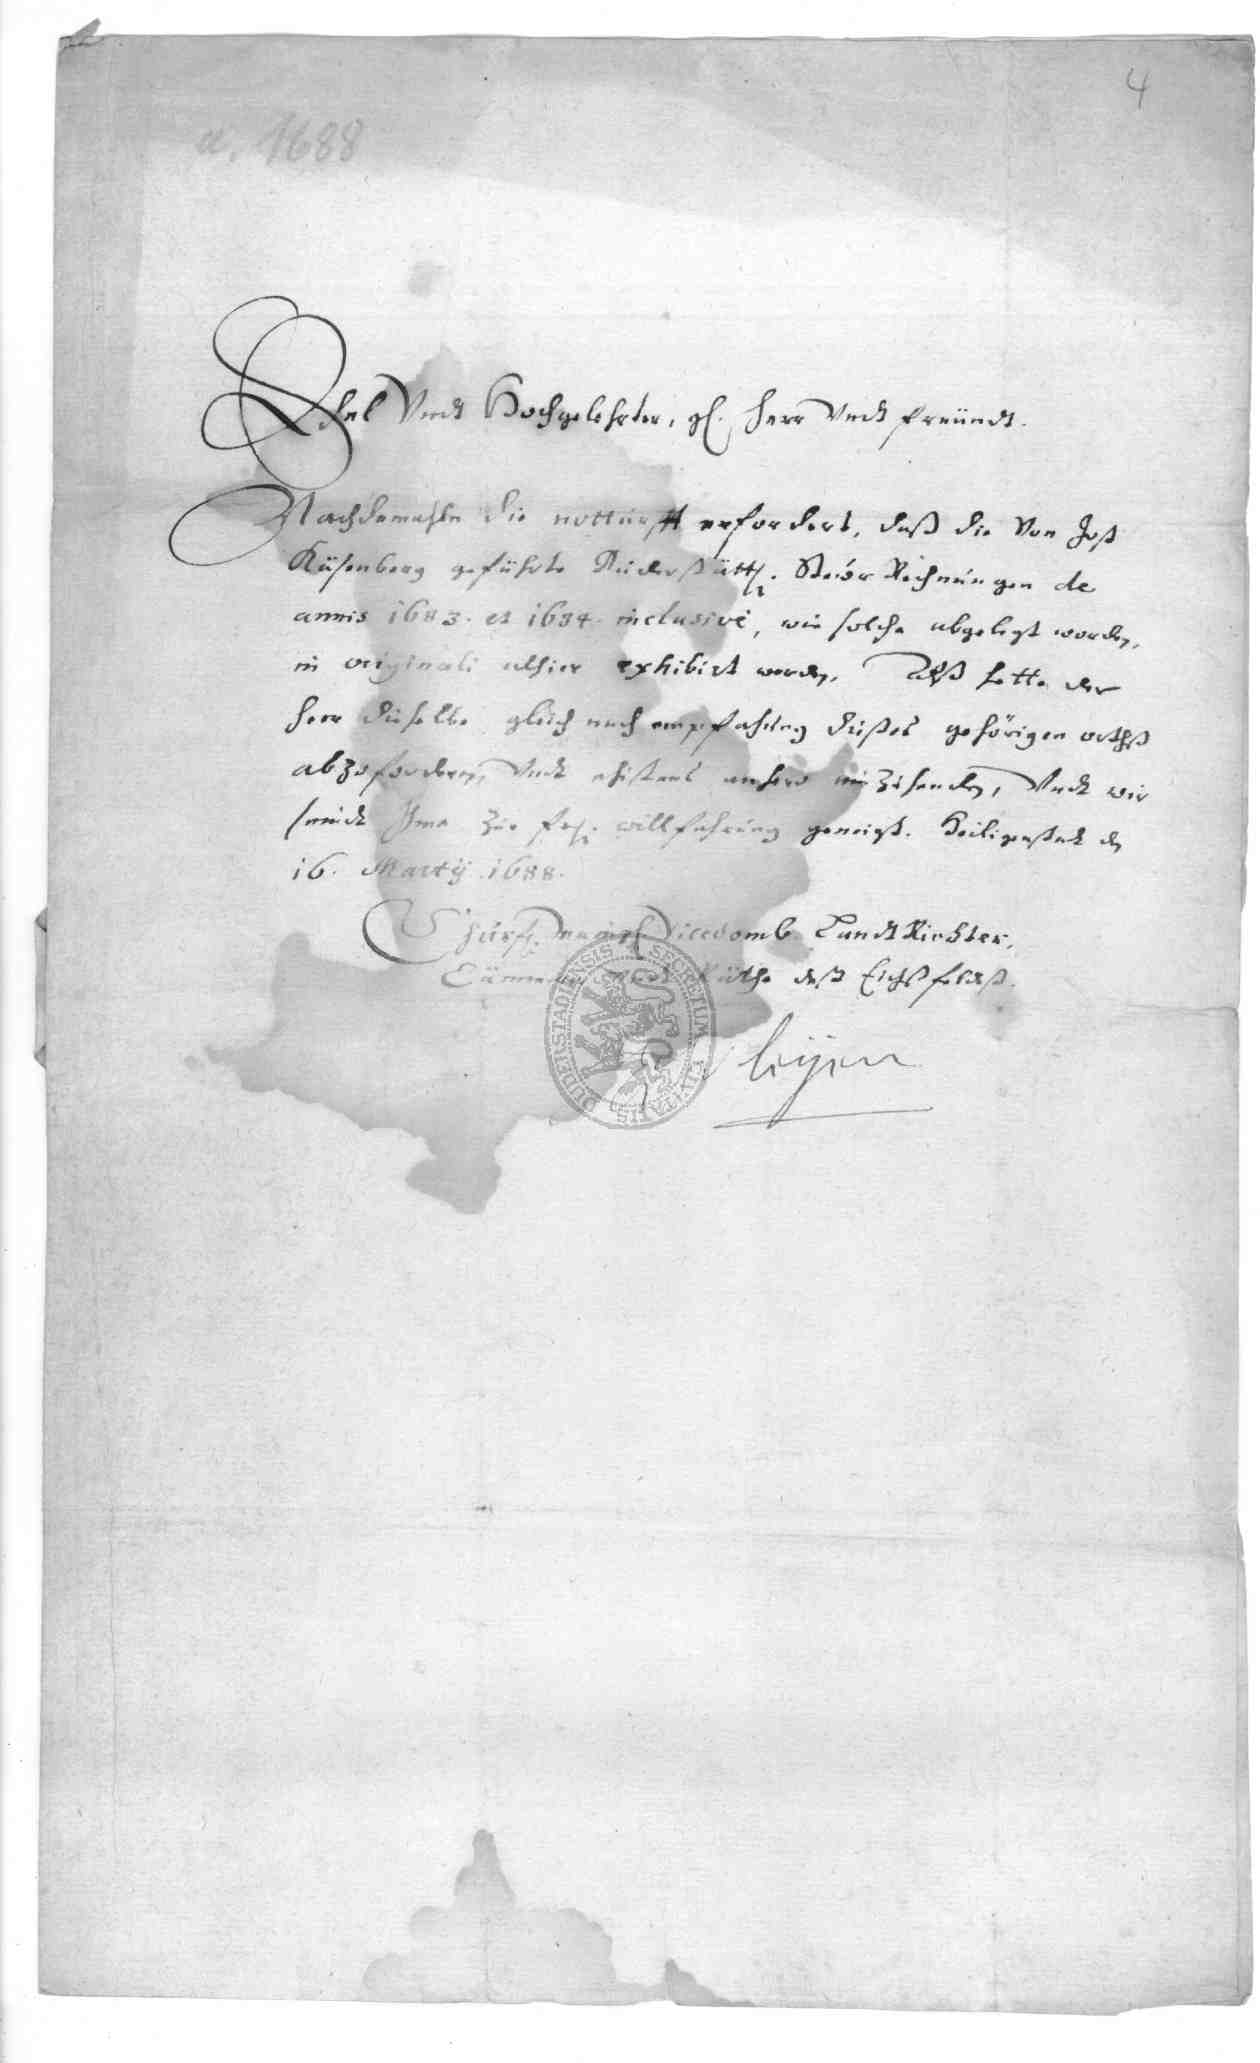 4
a. 1688
Edel Vndt Hochgelehrter, gl. Herr Vndt freündt.
Nachdemahln die notturfft erfordert, daß die Von Jost
Küsenberg geführte Steür Rechnungen de
annis 1683. et 1684. inclusivè, wie solche abgelegt worden,
in originali alhier exhibirt werden, Alß hette der
Herr dieselbe gleich nach empfahung dießes gehörigen orthß
abzufordern, Vndt ehistens anhero einzusenden, Vndt wir
seindt Ihme zu willfahrung geneigt. Heiligenstadt den
16. Martij 1688.
Churfl. Vicedomb, LandtRichter,
Vndt Räthe deß Eichßfeldß.
leyen
SECRETUM CIVITATIS DUDERSTADIENSIS